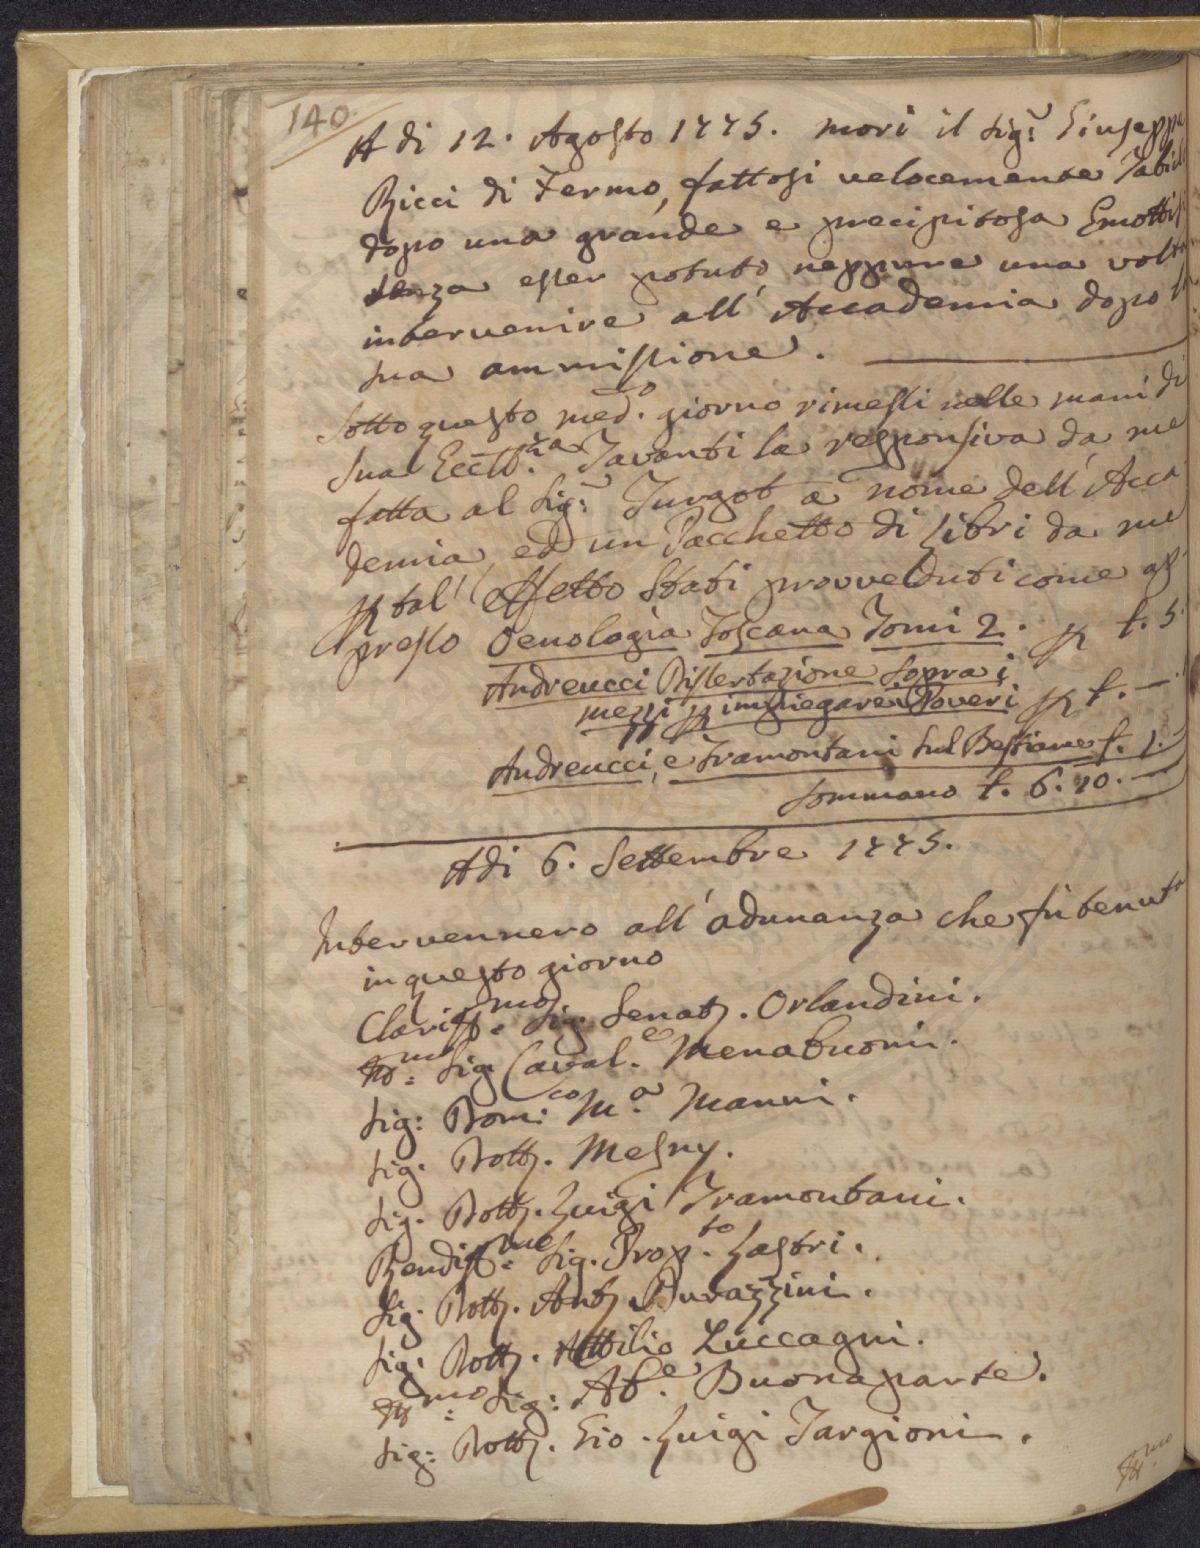 140.
A di 12. Agosto 1775. morì il Sig.r Giuseppe
Ricci di Fermo, fattosi velocemente Tabido
dopo una grande e precipitosa Emottisi
senza esser potuto neppure una volta
intervenire all'Accademia dopo la
sua ammissione.
Sotto questo med.o giorno rimessi nelle mani di
Sua Eccll.za Tavanti la responsiva da me
fatta al Sig.r Turgot a nome dell'Acca
demia ed un Pacchetto di Libri da me
p tal'effetto stati provveduti come ap-
presso Oenologia Toscana Tomi 2. p £. 5.
Andreucci Dissertazione sopra i
mezzi p impiegare i Poveri p £. —
Andreucci, e Tramontani sul Bestiame £. 1. —
Sommano £. 6. 10. —
Adi 6. Settembre 1775.
Intervennero all'adunanza che fu tenuta
in questo giorno
Clariss.mo Sig. Senat. Orlandini.
Ill.mo Sig. Caval.e Menabuoni.
Sig: Dom.co M.a Manni.
Sig. Dott. Mesny.
Sig. Dott. Luigi Tramontani.
Rendiss.mo Sig. Prop.to Lastri.
Sig. Dott. Ant. Durazzini.
Sig. Dott. Attilio Zuccagni.
Ill.mo Sig: Ab.e Buonaparte.
Sig: Dott. Gio. Luigi Targioni.
Ill.mo